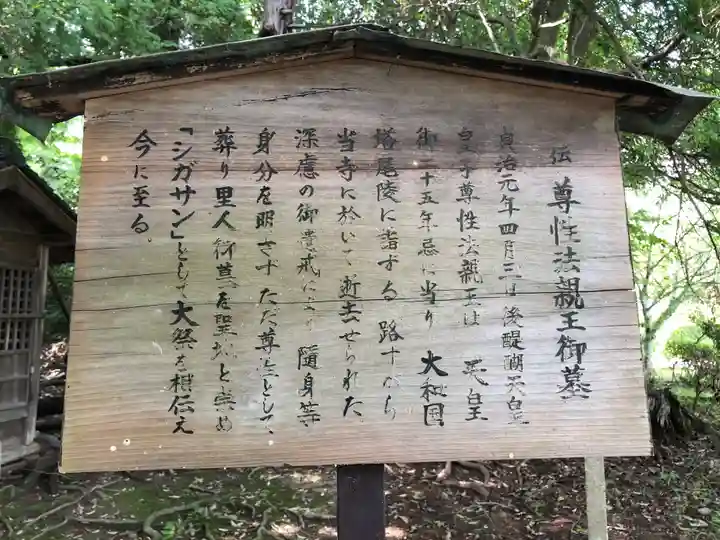 伝 尊性法親王御墓
貞治元年四月三日後醍醐天皇
皇子尊性法親王は 天皇
御二十五年忌に当り 大和国
塔尾陵に詣する路すがら
当寺に於いて逝去せられた
深慮の御貴戒により 随身等
身分を明さず ただ尊士として、
葬り里人御墓を聖地と崇め
「シガサン」として大祭を相伝え
今に至る。